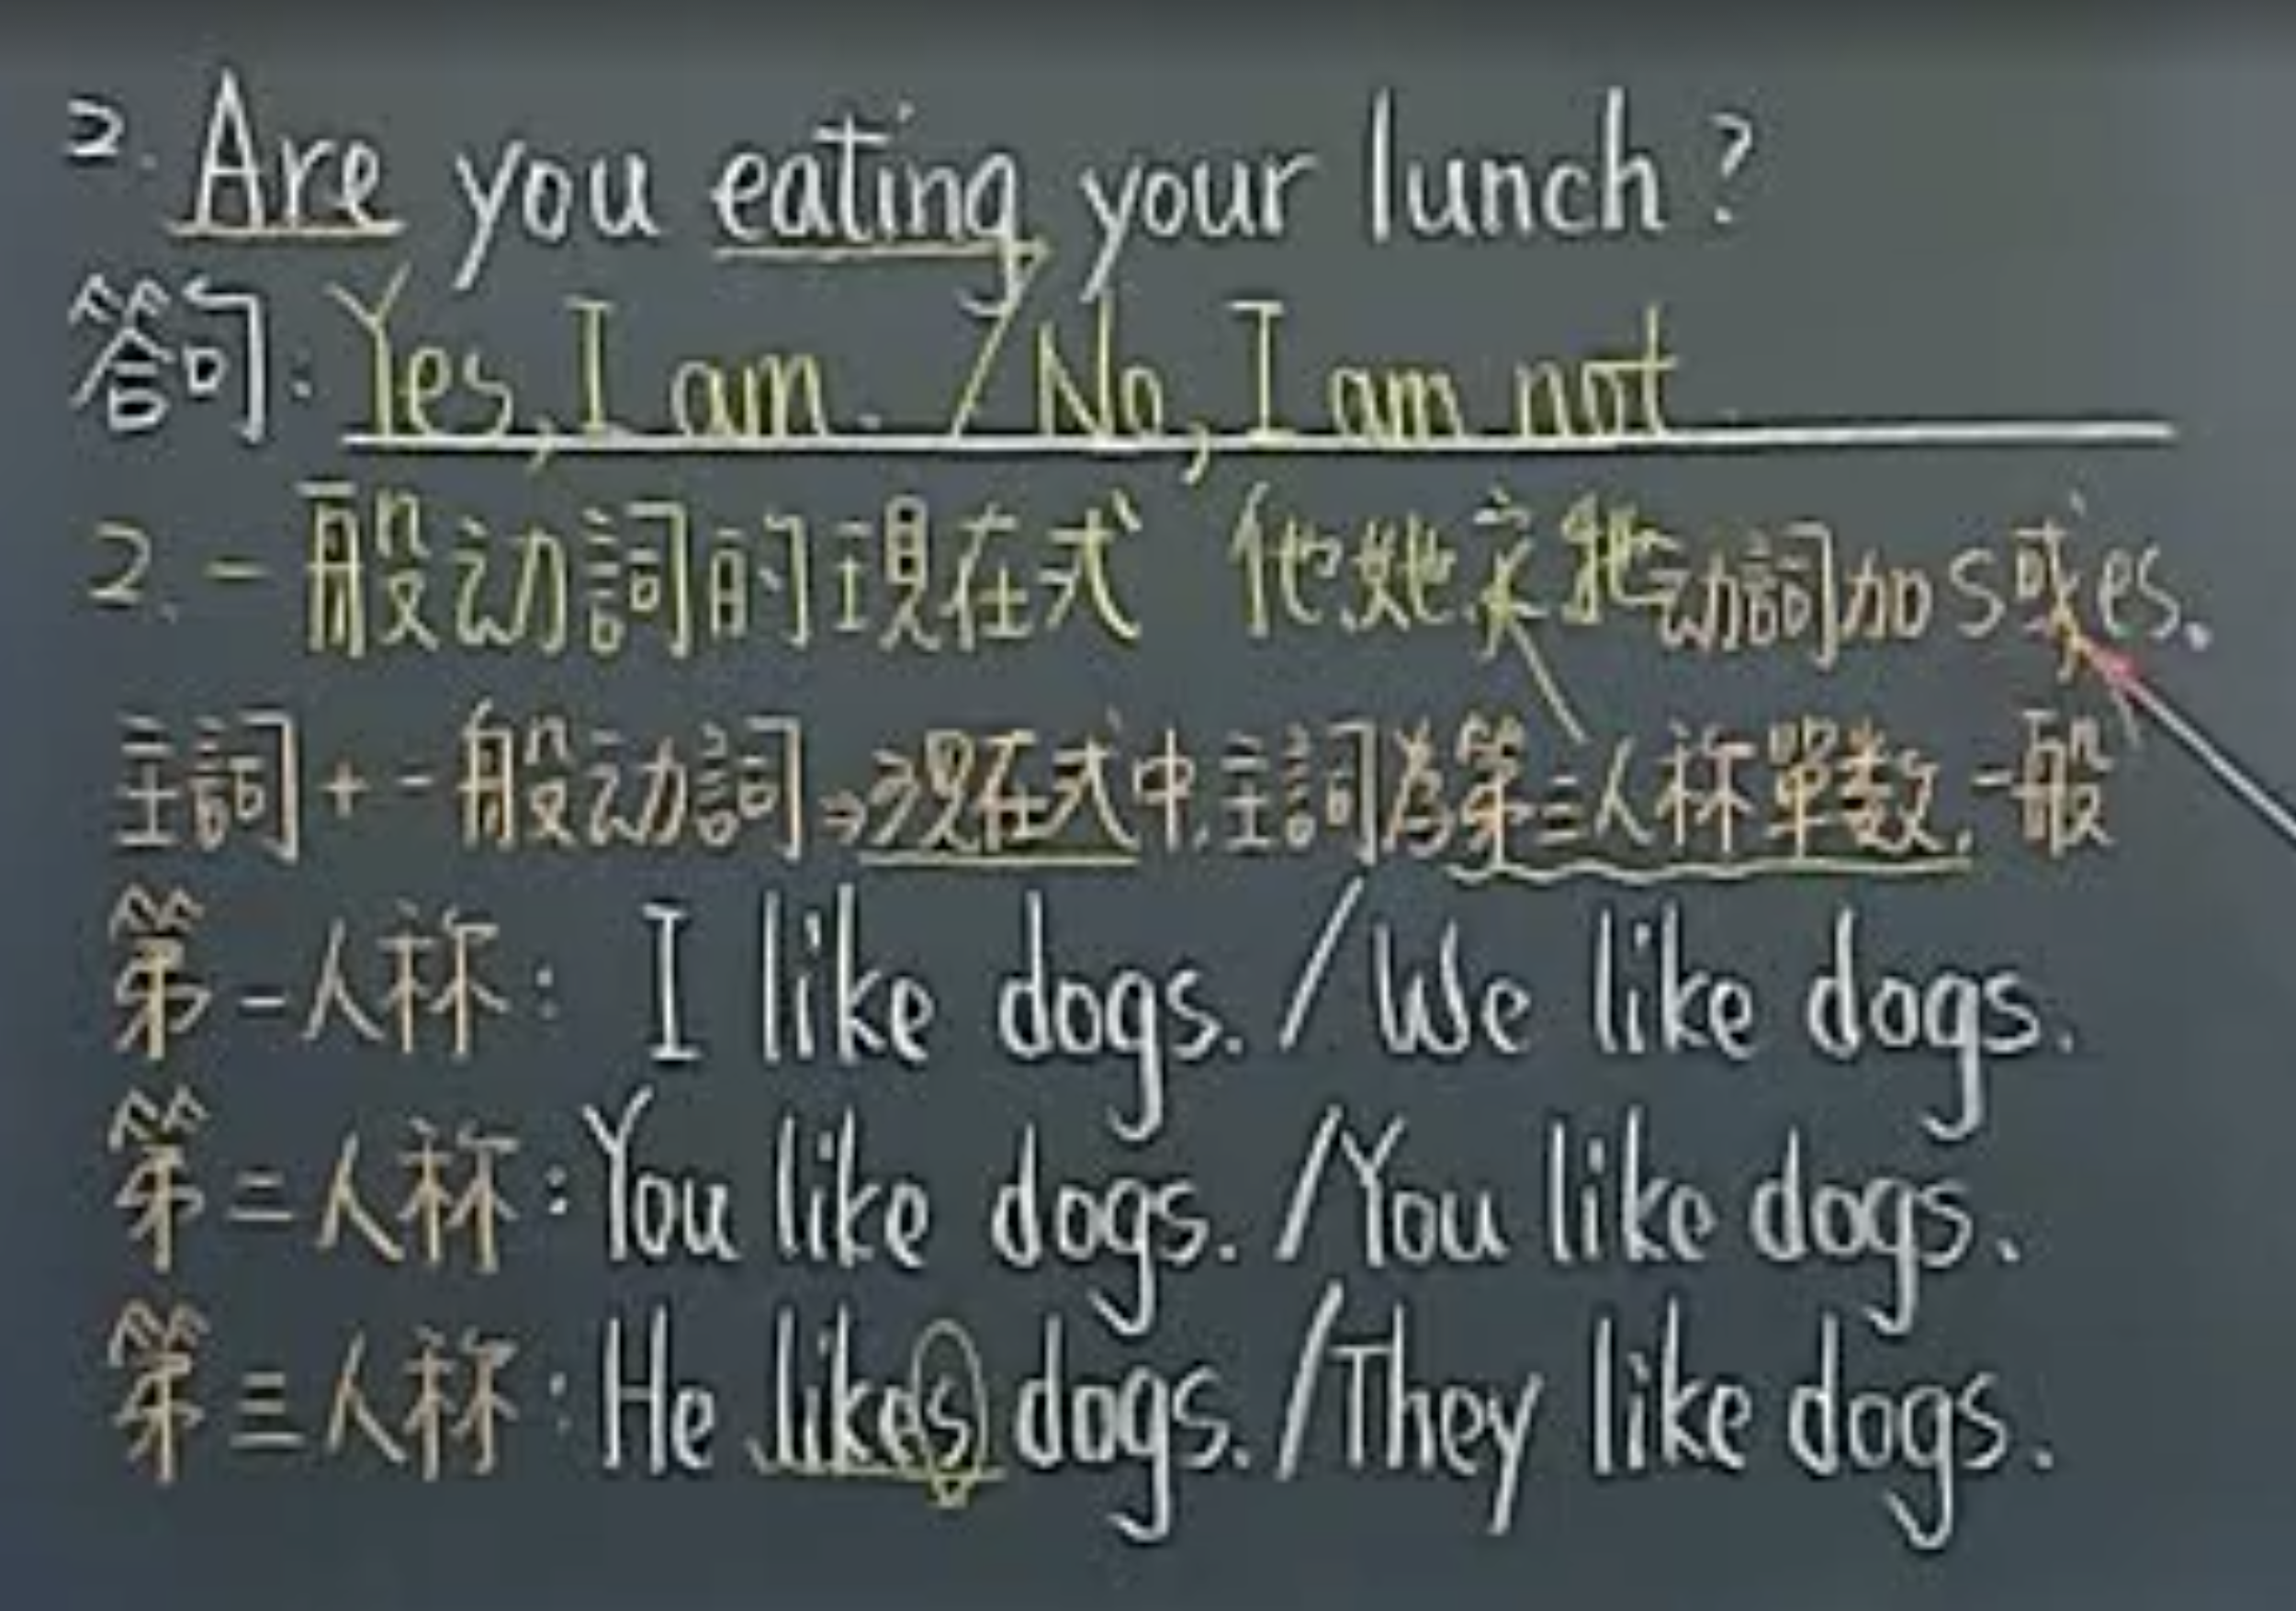 2. Are you eating your lunch?
答句: Yes, I am. / No, I am not.
2. 一般动詞的現在式 他她它牠动詞加s或es.
主詞+一般动詞→現在式中,主詞為第三人称單数,一般
第一人称: I like dogs. / We like dogs.
第二人称: You like dogs. / You like dogs.
第三人称: He likes dogs. / They like dogs.